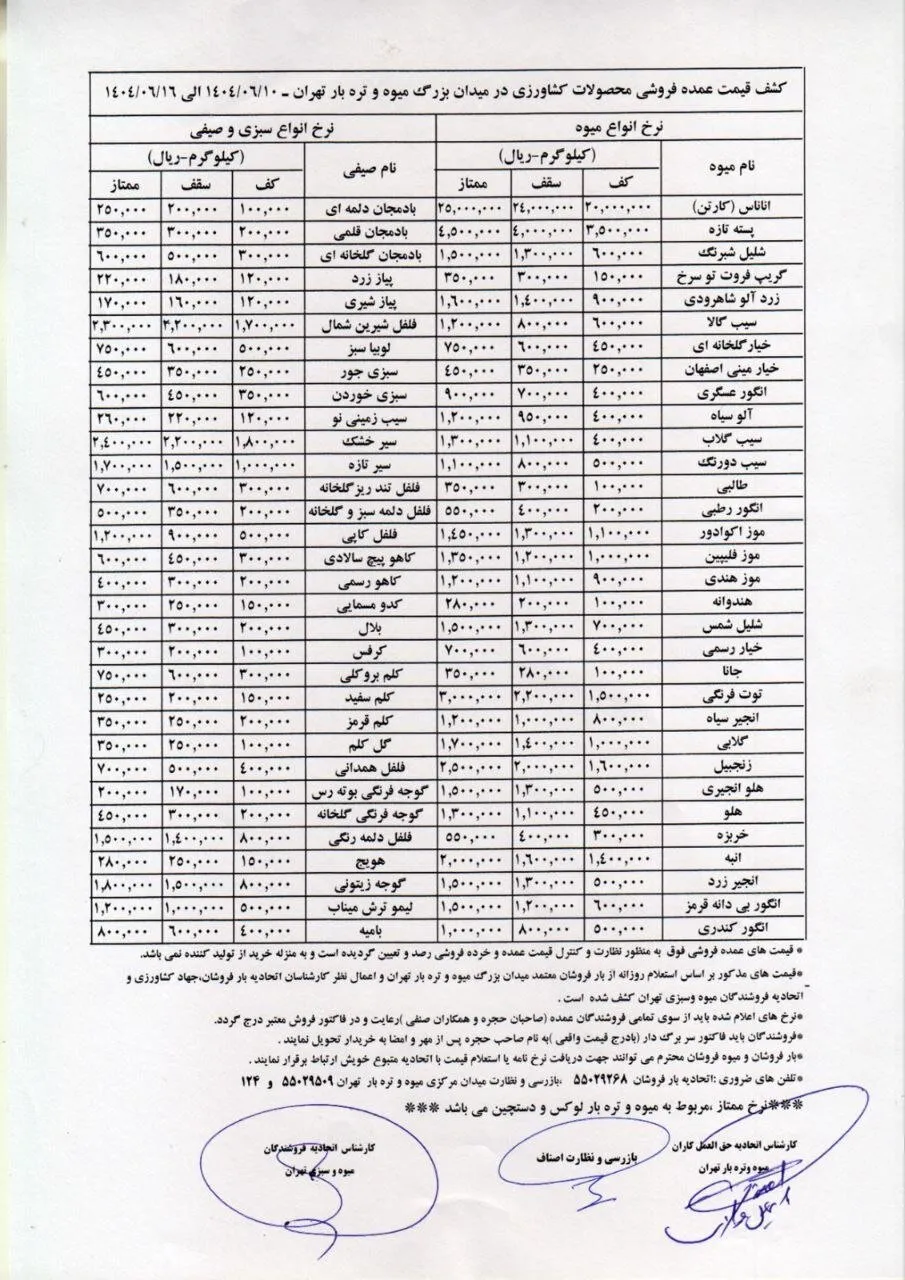 کشف قیمت عمده فروشی محصولات کشاورزی در میدان بزرگ میوه و تره بار تهران ــ ۱۴۰۴/۰۶/۱۰ الی ۱۴۰۴/۰۶/۱۶
نرخ انواع میوه نرخ انواع سبزی و صیفی
نام میوه (کیلوگرم-ریال) نام صیفی (کیلوگرم-ریال)
کف سقف ممتاز کف سقف ممتاز
اناناس (کارتن) ۲۰,۰۰۰,۰۰۰ ۲٤,۰۰۰,۰۰۰ ۲۵,۰۰۰,۰۰۰ بادمجان دلمه ای ۱۰۰,۰۰۰ ۲۰۰,۰۰۰ ۲۵۰,۰۰۰
پسته تازه ۳,۵۰۰,۰۰۰ ٤,۰۰۰,۰۰۰ ٤,۵۰۰,۰۰۰ بادمجان قلمی ۲۰۰,۰۰۰ ۳۰۰,۰۰۰ ۳۵۰,۰۰۰
شلیل شبرنگ ۶۰۰,۰۰۰ ۱,۳۰۰,۰۰۰ ۱,۵۰۰,۰۰۰ بادمجان گلخانه ای ۳۰۰,۰۰۰ ۵۰۰,۰۰۰ ۶۰۰,۰۰۰
گریپ فروت تو سرخ ۱۵۰,۰۰۰ ۳۰۰,۰۰۰ ۳۵۰,۰۰۰ پیاز زرد ۱۲۰,۰۰۰ ۱۸۰,۰۰۰ ۲۲۰,۰۰۰
زرد آلو شاهرودی ۹۰۰,۰۰۰ ۱,٤۰۰,۰۰۰ ۱,۶۰۰,۰۰۰ پیاز شیری ۱۲۰,۰۰۰ ۱۶۰,۰۰۰ ۱۷۰,۰۰۰
سیب گالا ۶۰۰,۰۰۰ ۸۰۰,۰۰۰ ۱,۲۰۰,۰۰۰ فلفل شیرین شمال ۱,۷۰۰,۰۰۰ ۲,۲۰۰,۰۰۰ ۲,۳۰۰,۰۰۰
خیارگلخانه ای ٤۵۰,۰۰۰ ۶۰۰,۰۰۰ ۷۵۰,۰۰۰ لوبیا سبز ۵۰۰,۰۰۰ ۶۰۰,۰۰۰ ۷۵۰,۰۰۰
خیار مینی اصفهان ۲۵۰,۰۰۰ ۳۵۰,۰۰۰ ٤۵۰,۰۰۰ سبزی جور ۲۵۰,۰۰۰ ۳۵۰,۰۰۰ ٤۵۰,۰۰۰
انگور عسگری ٤۰۰,۰۰۰ ۷۰۰,۰۰۰ ۹۰۰,۰۰۰ سبزی خوردن ۳۵۰,۰۰۰ ٤۵۰,۰۰۰ ۶۰۰,۰۰۰
آلو سیاه ٤۰۰,۰۰۰ ۹۵۰,۰۰۰ ۱,۲۰۰,۰۰۰ سیب زمینی نو ۱۲۰,۰۰۰ ۲۲۰,۰۰۰ ۲۶۰,۰۰۰
سیب گلاب ٤۰۰,۰۰۰ ۱,۱۰۰,۰۰۰ ۱,۳۰۰,۰۰۰ سیر خشک ۱,۸۰۰,۰۰۰ ۲,۲۰۰,۰۰۰ ۲,٤۰۰,۰۰۰
سیب دورنگ ۵۰۰,۰۰۰ ۸۰۰,۰۰۰ ۱,۱۰۰,۰۰۰ سیر تازه ۱,۰۰۰,۰۰۰ ۱,۵۰۰,۰۰۰ ۱,۷۰۰,۰۰۰
طالبی ۱۰۰,۰۰۰ ۳۰۰,۰۰۰ ۳۵۰,۰۰۰ فلفل تند ریزگلخانه ۳۰۰,۰۰۰ ۶۰۰,۰۰۰ ۷۰۰,۰۰۰
انگور رطبی ۲۰۰,۰۰۰ ٤۰۰,۰۰۰ ۵۵۰,۰۰۰ فلفل دلمه سبز و گلخانه ۲۰۰,۰۰۰ ۳۵۰,۰۰۰ ۵۰۰,۰۰۰
موز اکوادور ۱,۱۰۰,۰۰۰ ۱,۳۰۰,۰۰۰ ۱,٤۵۰,۰۰۰ فلفل کاپی ۵۰۰,۰۰۰ ۹۰۰,۰۰۰ ۱,۲۰۰,۰۰۰
موز فلیپین ۱,۰۰۰,۰۰۰ ۱,۲۰۰,۰۰۰ ۱,۳۵۰,۰۰۰ کاهو پیچ سالادی ۳۰۰,۰۰۰ ٤۵۰,۰۰۰ ۶۰۰,۰۰۰
موز هندی ۹۰۰,۰۰۰ ۱,۱۰۰,۰۰۰ ۱,۲۰۰,۰۰۰ کاهو رسمی ۲۰۰,۰۰۰ ۳۰۰,۰۰۰ ٤۰۰,۰۰۰
هندوانه ۱۰۰,۰۰۰ ۲۰۰,۰۰۰ ۲۸۰,۰۰۰ کدو مسمایی ۱۵۰,۰۰۰ ۲۵۰,۰۰۰ ۳۰۰,۰۰۰
شلیل شمس ۷۰۰,۰۰۰ ۱,۳۰۰,۰۰۰ ۱,۵۰۰,۰۰۰ بلال ۲۰۰,۰۰۰ ۳۰۰,۰۰۰ ٤۵۰,۰۰۰
خیار رسمی ٤۰۰,۰۰۰ ۶۰۰,۰۰۰ ۷۰۰,۰۰۰ کرفس ۱۰۰,۰۰۰ ۲۰۰,۰۰۰ ۳۰۰,۰۰۰
جانا ۱۰۰,۰۰۰ ۲۸۰,۰۰۰ ۳۵۰,۰۰۰ کلم بروکلی ۳۰۰,۰۰۰ ۶۰۰,۰۰۰ ۷۵۰,۰۰۰
توت فرنگی ۱,۵۰۰,۰۰۰ ۲,۲۰۰,۰۰۰ ۳,۰۰۰,۰۰۰ کلم سفید ۱۵۰,۰۰۰ ۲۰۰,۰۰۰ ۲۵۰,۰۰۰
انجیر سیاه ۸۰۰,۰۰۰ ۱,۰۰۰,۰۰۰ ۱,۲۰۰,۰۰۰ کلم قرمز ۲۰۰,۰۰۰ ۲۵۰,۰۰۰ ۳۵۰,۰۰۰
گلابی ۱,۰۰۰,۰۰۰ ۱,٤۰۰,۰۰۰ ۱,۷۰۰,۰۰۰ گل کلم ۱۰۰,۰۰۰ ۲۵۰,۰۰۰ ۳۵۰,۰۰۰
زنجبیل ۱,۶۰۰,۰۰۰ ۲,۰۰۰,۰۰۰ ۲,۵۰۰,۰۰۰ فلفل همدانی ٤۰۰,۰۰۰ ۵۰۰,۰۰۰ ۷۰۰,۰۰۰
هلو انجیری ۵۰۰,۰۰۰ ۱,۳۰۰,۰۰۰ ۱,۵۰۰,۰۰۰ گوجه فرنگی بوته رس ۱۰۰,۰۰۰ ۱۷۰,۰۰۰ ۲۰۰,۰۰۰
هلو ٤۵۰,۰۰۰ ۱,۱۰۰,۰۰۰ ۱,۳۰۰,۰۰۰ گوجه فرنگی گلخانه ۲۰۰,۰۰۰ ۳۰۰,۰۰۰ ٤۵۰,۰۰۰
خربزه ۳۰۰,۰۰۰ ٤۰۰,۰۰۰ ۵۵۰,۰۰۰ فلفل دلمه رنگی ۸۰۰,۰۰۰ ۱,٤۰۰,۰۰۰ ۱,۵۰۰,۰۰۰
انبه ۱,٤۰۰,۰۰۰ ۱,۶۰۰,۰۰۰ ۲,۰۰۰,۰۰۰ هویج ۱۵۰,۰۰۰ ۲۵۰,۰۰۰ ۲۸۰,۰۰۰
انجیر زرد ۵۰۰,۰۰۰ ۱,۳۰۰,۰۰۰ ۱,۵۰۰,۰۰۰ گوجه زیتونی ۸۰۰,۰۰۰ ۱,۵۰۰,۰۰۰ ۱,۸۰۰,۰۰۰
انگور بی دانه قرمز ۶۰۰,۰۰۰ ۱,۲۰۰,۰۰۰ ۱,۵۰۰,۰۰۰ لیمو ترش میناب ۵۰۰,۰۰۰ ۱,۰۰۰,۰۰۰ ۱,۲۰۰,۰۰۰
انگور کندری ۵۰۰,۰۰۰ ۸۰۰,۰۰۰ ۱,۰۰۰,۰۰۰ بامیه ٤۰۰,۰۰۰ ۶۰۰,۰۰۰ ۸۰۰,۰۰۰
* قیمت های عمده فروشی فوق به منظور نظارت و کنترل قیمت عمده و خرده فروشی رصد و تعیین گردیده است و به منزله خرید از تولید کننده نمی باشد.
*قیمت های مذکور بر اساس استعلام روزانه از بار فروشان معتمد میدان بزرگ میوه و تره بار تهران و اعمال نظر کارشناسان اتحادیه بار فروشان،جهاد کشاورزی و
اتحادیه فروشندگان میوه وسبزی تهران کشف شده است .
*نرخ های اعلام شده باید از سوی تمامی فروشندگان عمده (صاحبان حجره و همکاران صنفی )رعایت و در فاکتور فروش معتبر درج گردد.
*فروشندگان باید فاکتور سر برگ دار (بادرج قیمت واقعی )به نام صاحب حجره پس از مهر و امضا به خریدار تحویل نمایند .
*بار فروشان و میوه فروشان محترم می توانند جهت دریافت نرخ نامه یا استعلام قیمت با اتحادیه متبوع خویش ارتباط برقرار نمایند .
*تلفن های ضروری :اتحادیه بار فروشان ۵۵۰۲۹۲۶۸ ،بازرسی و نظارت میدان مرکزی میوه و تره بار تهران ۵۵۰۲۹۵۰۹ و ۱۲٤
***نرخ ممتاز ،مربوط به میوه و تره بار لوکس و دستچین می باشد ***
کارشناس اتحادیه حق العمل کاران
میوه وتره بار تهران
بازرسی و نظارت اصناف
کارشناس اتحادیه فروشندگان
میوه و سبزی تهران